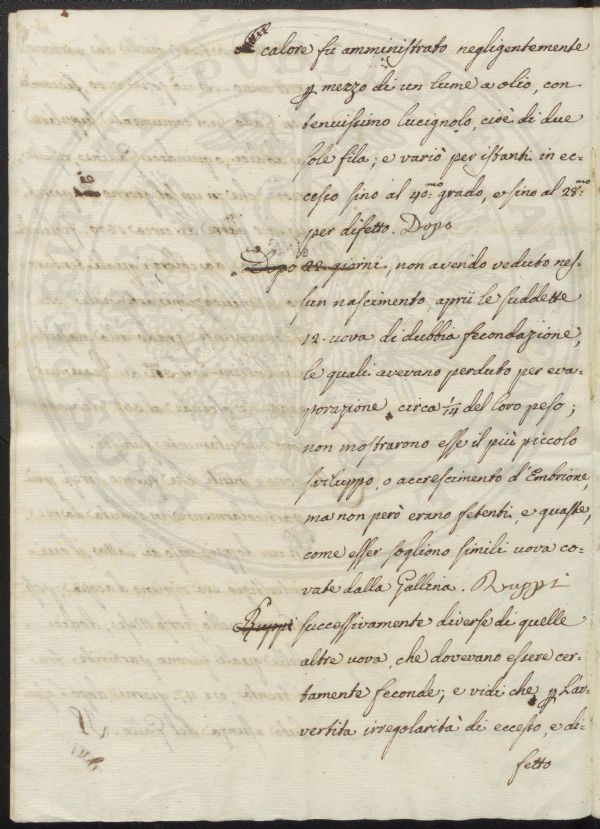 Il calore fù amministrato negligentemente
ꝑ mezzo di un lume a olio, con
tenuissimo lucignolo, cioè di due
sole fila; e variò per istanti in ec-
cesso sino al 40.mo grado, e sino al 28.mo
per difetto. Dopo
Dopo 22. giorni, non avendo veduto nes-
sun nascimento, aprii le suddette
12. uova di dubbia fecondazione,
le quali avevano perduto per eva-
porazione circa 1/14 del loro peso;
non mostrarono esse il più piccolo
sviluppo, o accrescimento d'Embrione,
ma non però erano fetenti, e guaste,
come esser sogliono simili uova co-
vate dalla Gallina. Ruppi
Ruppi successivamente diverse di quelle
altre uova, che dovevano essere cer-
tamente feconde; e vidi che ꝑ l'av-
vertita irregolarità di eccesso, e di-
fetto